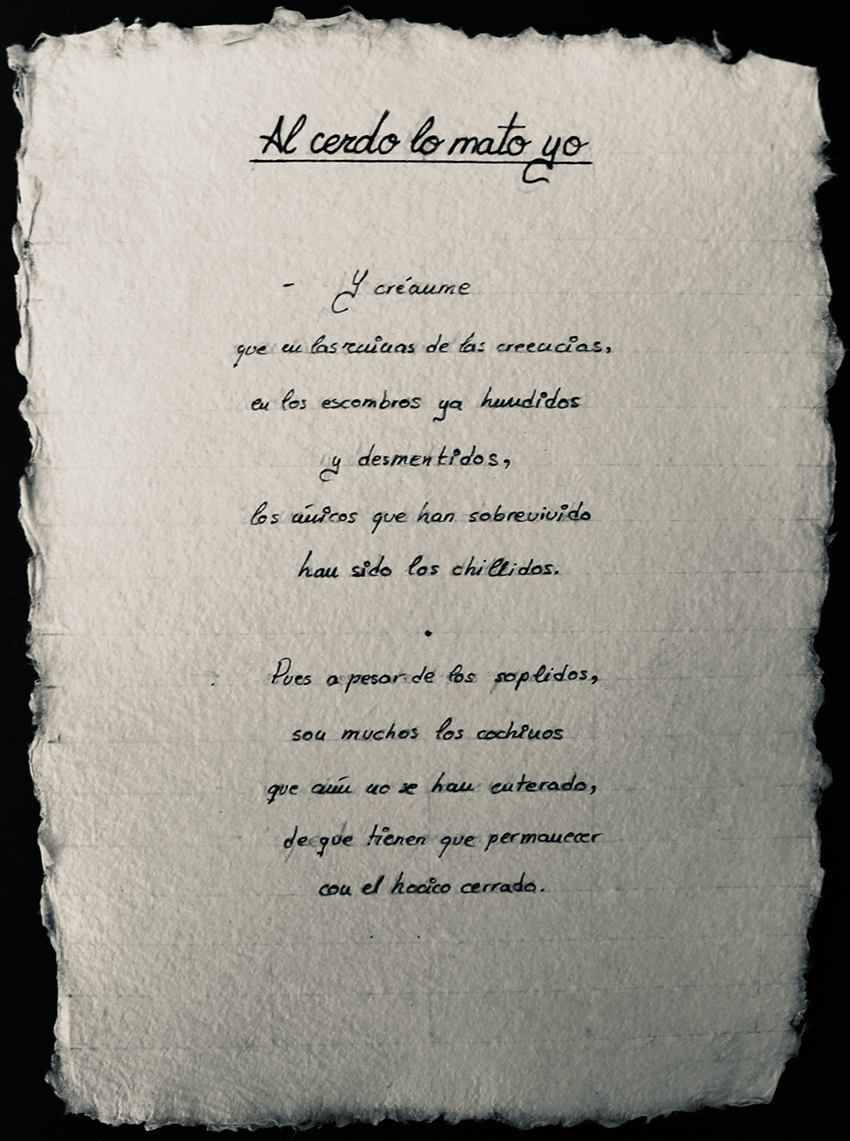 Al cerdo lo mato yo
- Y créanme
que en las ruinas de las creencias,
en los escombros ya hundidos
y desmentidos,
los únicos que han sobrevivido
han sido los chillidos.
.
Pues a pesar de los soplidos,
son muchos los cochinos
que aún no se han enterado,
de que tienen que permanecer
con el hocico cerrado.